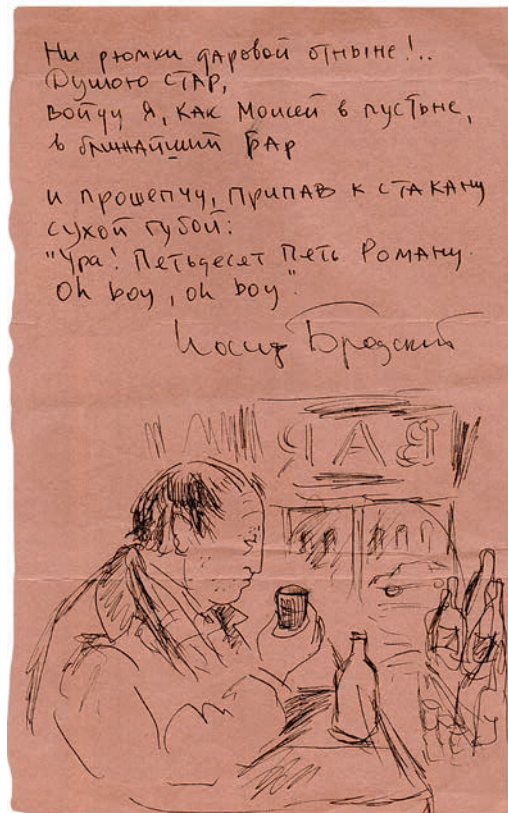 Ни рюмки даровой отныне!..
Душою стар,
войду я, как Моисей в пустыне,
в ближайший бар
и прошепчу, припав к стакану
сухой губой:
"Ура! Петьдесет Петь Роману.
Oh boy, oh boy".
Иосиф Бродский
ЯАБ